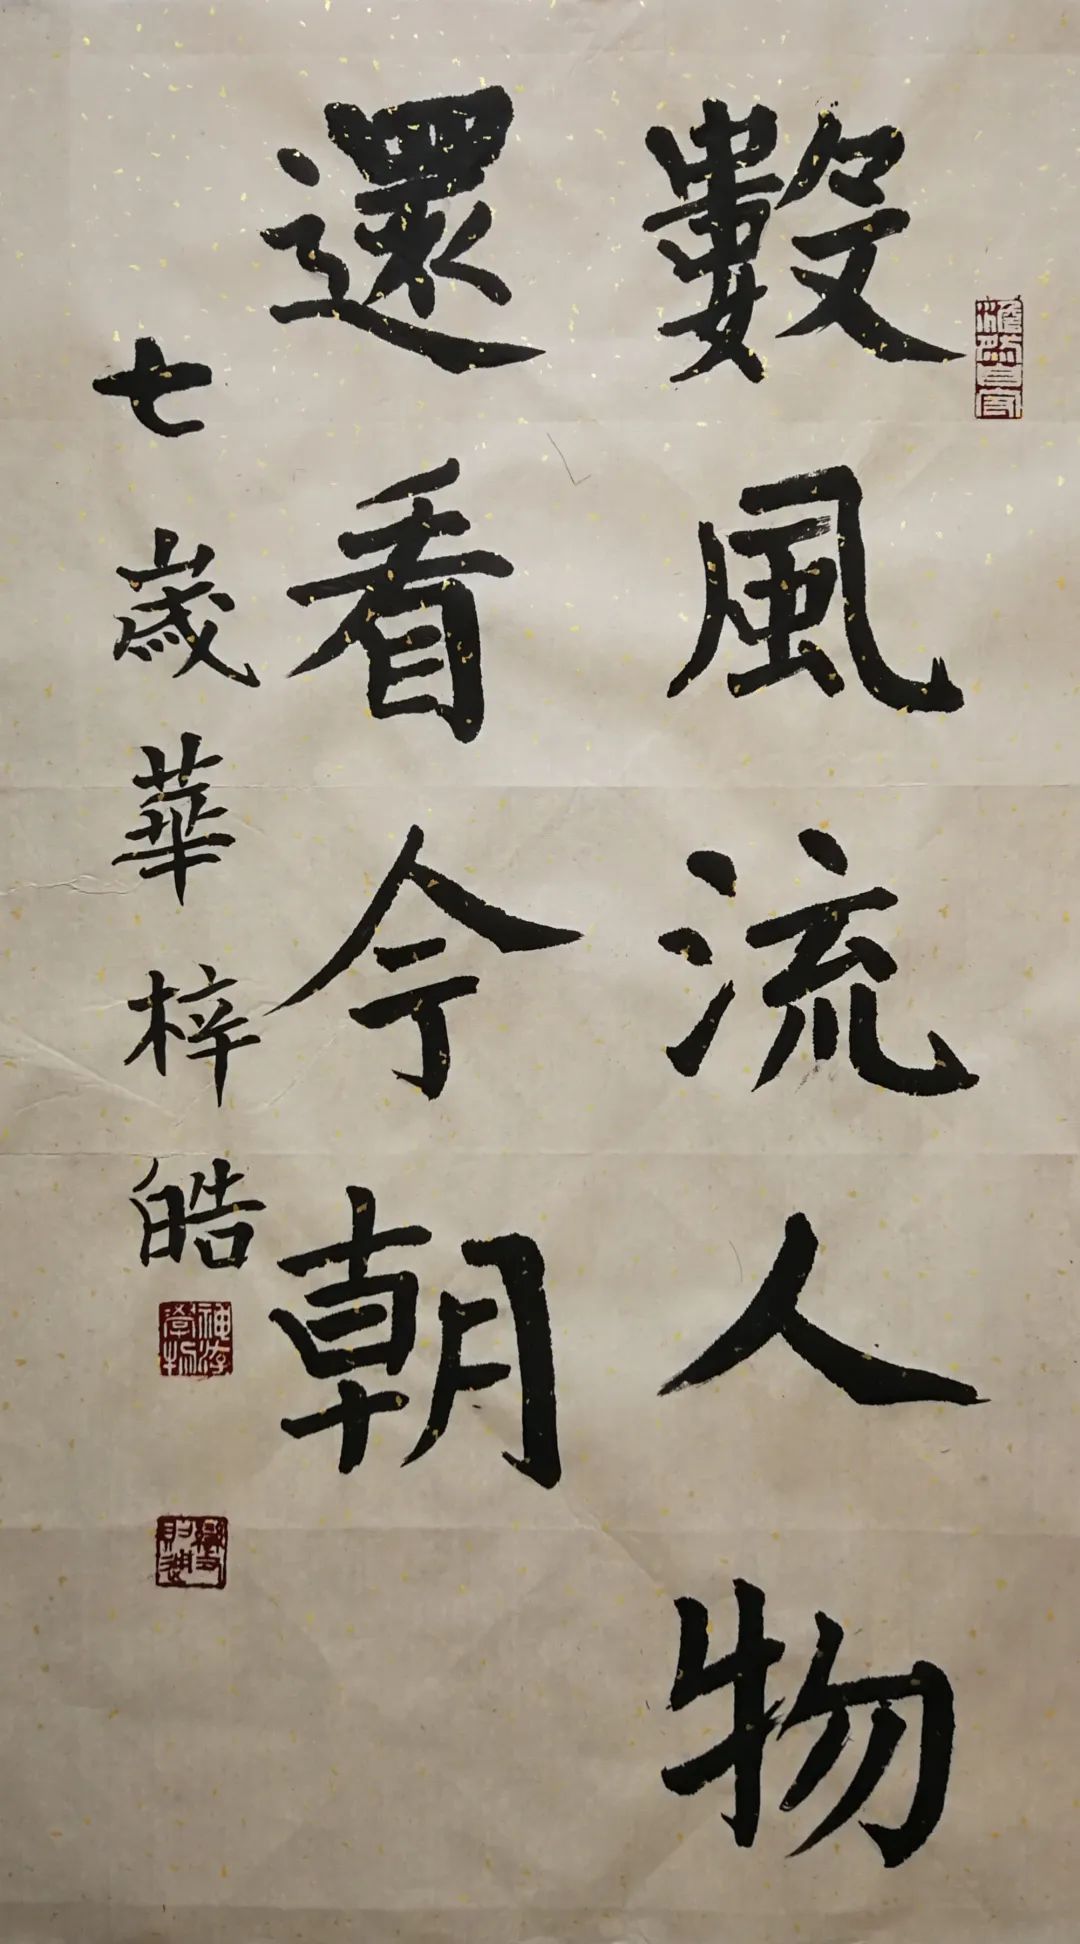 數風流人物
還看今朝
七歲華梓皓